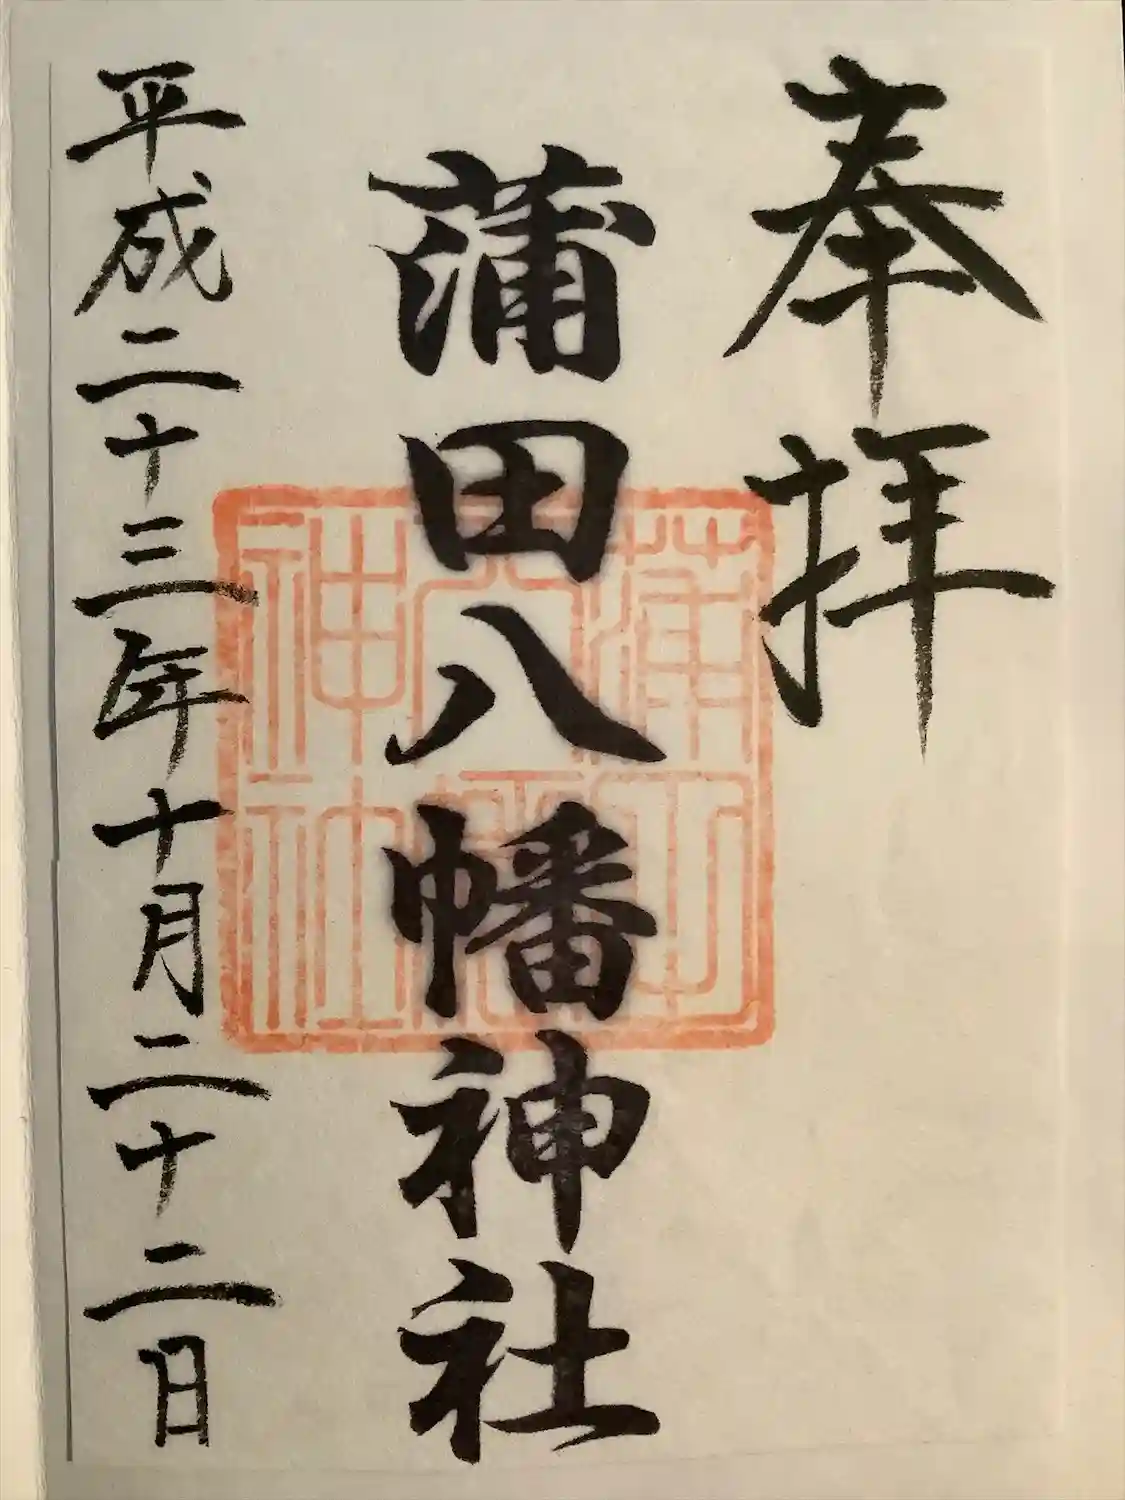 奉拝
蒲田八幡神社
平成二十三年十月二十二日
蒲田
八幡
神社